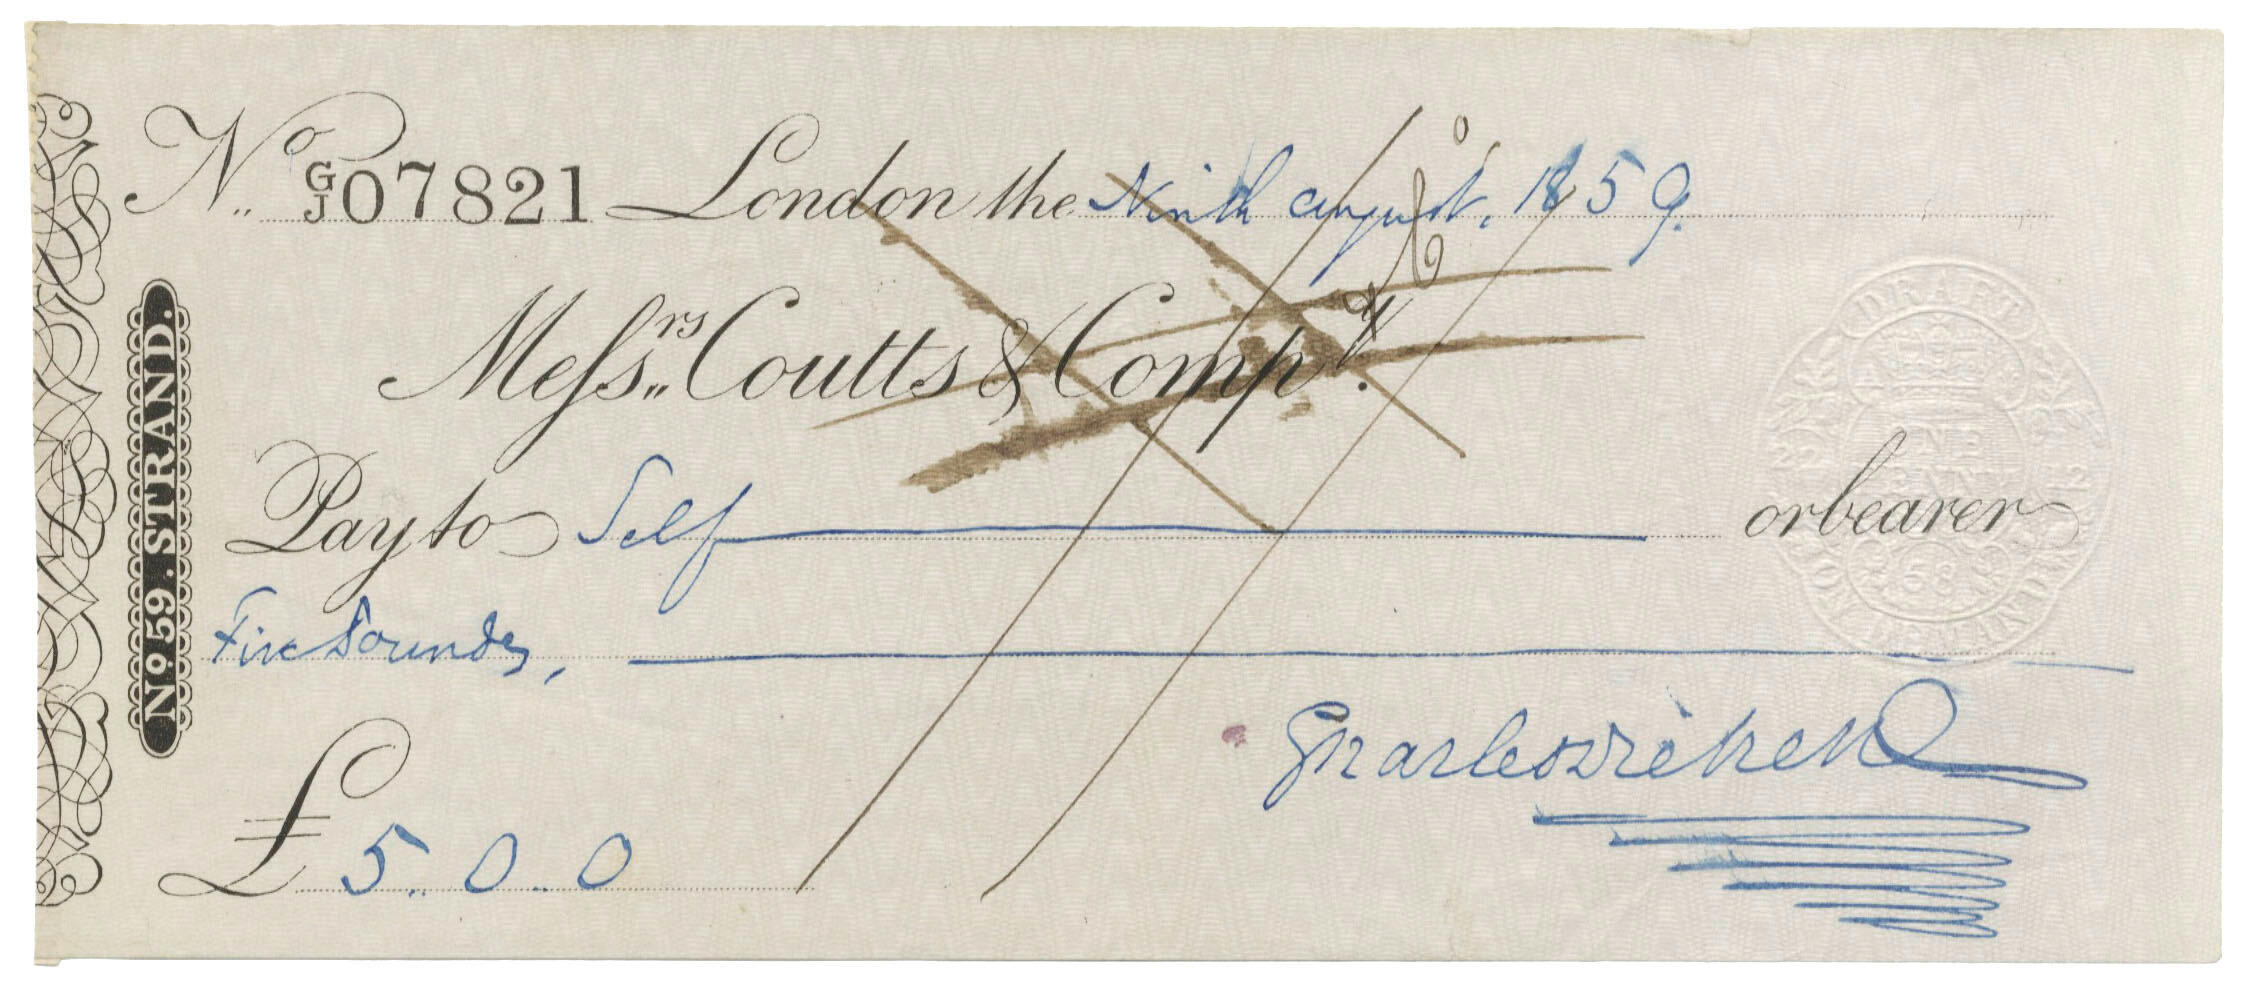 No G/J 07821 London the Ninth August, 1859.
Messrs Coutts & Compy.
No 59. STRAND.
Pay to Self or bearer
Five Pounds,
£ 5..0..0
Charles Dickens
DRAFT
ONE PENNY
22 12
58
ON DEMAND